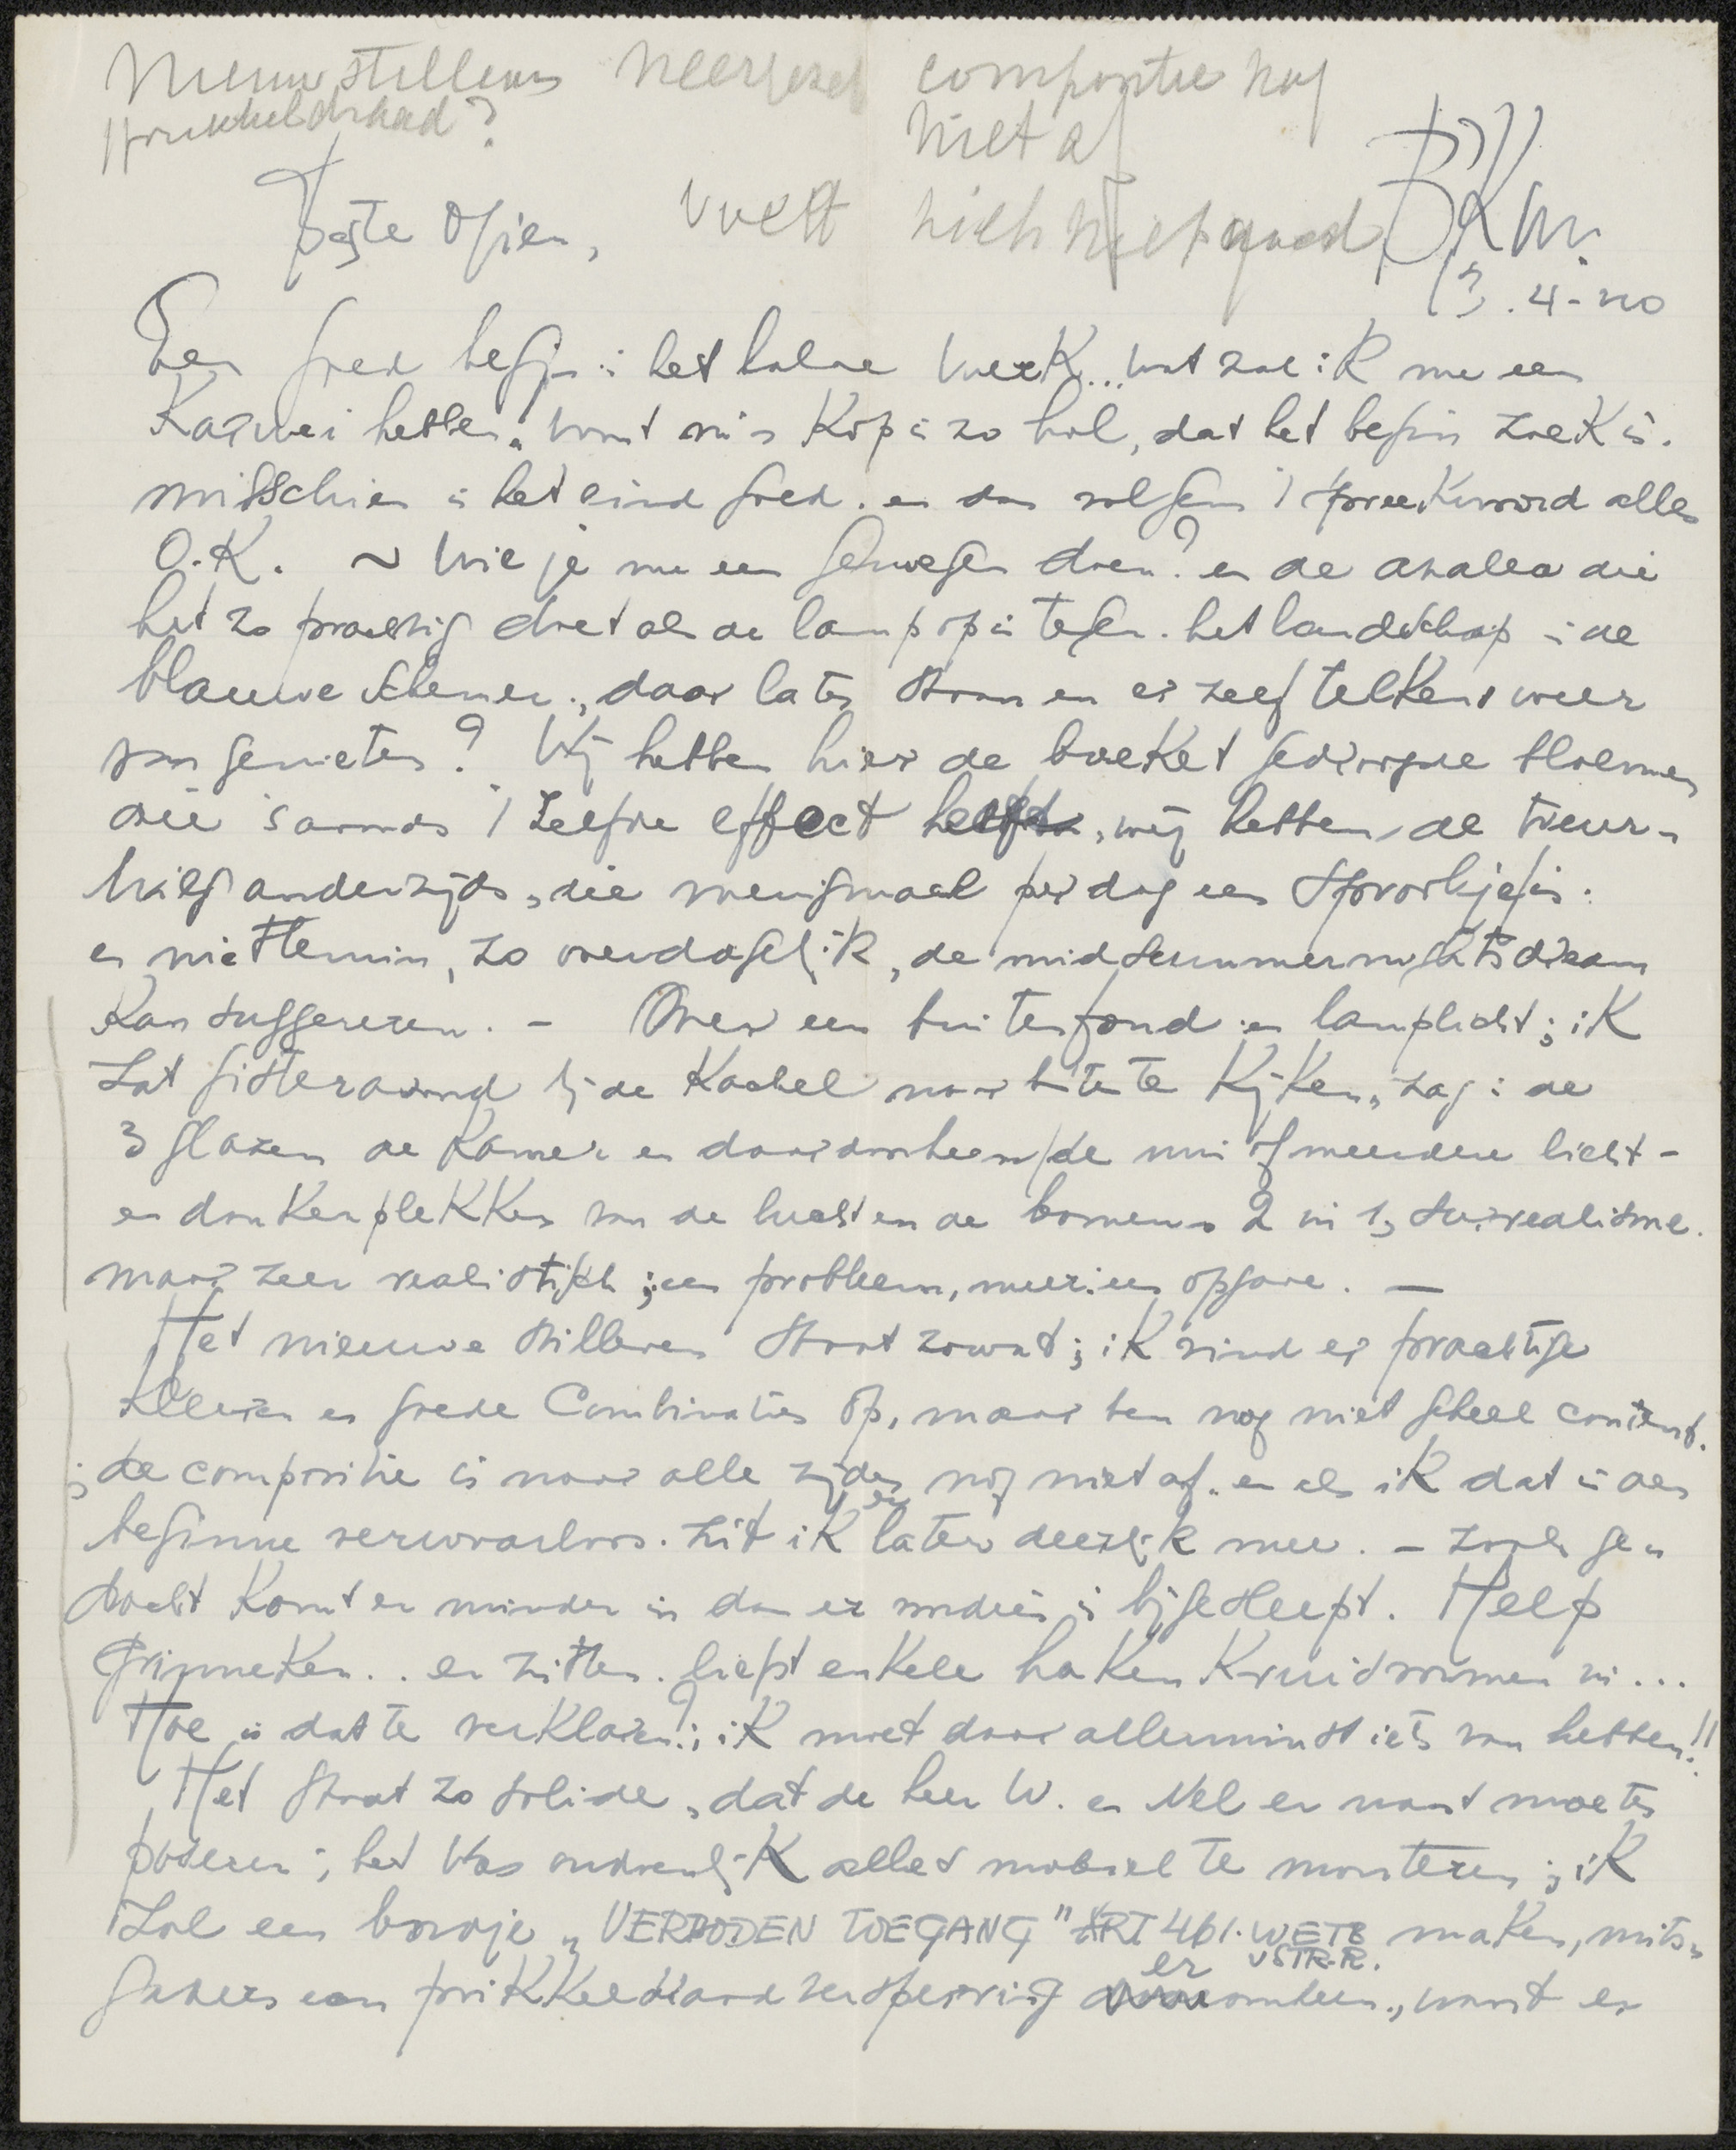 Nieuw stilleven neergezet compositie nog
prikkeldraad? niet af
Beste Opien, voelt zich niet goed BKm.
13.4-20
Een goed begin is het halve werk... wat zal ik me een
Karwei hebben, want m'n Kop is zo hol, dat het begin zoek is.
misschien is het eind goed. en dan volgens 't spreekwoord alles
O.K. ~ Wil je me een genoegen doen? en de azalea die
het zo prachtig doet als de lamp op is tegen het landschap in de
blauwe schemer, daar laten staan en er zelf telkens weer
van genieten? Wij hebben hier de boeket gedroogde bloemen
die 's avonds 't zelfde effect heeft, wij hebben de treur-
wilg anderzijds, die menigmaal per dag een spoorlijn is:
en niettemin, zo overdagelijk, de midsummernightsdream
Kan suggereren. - Over een buitenfond en lamplicht; ik
zat gisteravond bij de Kachel naar buiten te Kijken, zag in de
3 glazen de Kamer en daardoorheen de min of meerdere licht-
en donkerplekken van de lucht en de bomen 2 in 1, surrealisme.
maar zeer realistisch; een probleem, meer: een opgave. —
Het nieuwe stilleven staat zowat; ik vind er prachtige
Kleuren en goede Combinaties op, maar ben nog niet geheel content.
; de compositie is naar alle zijden nog niet af. en als ik dat in den
beginne verwaarloos. zit ik er later deerlijk mee. - zoals ge-
dacht Komt er minder in dan er voordien is bijgesleept. Help
Grinneken.. er zitten liefst enkele haken Kruidvormen in...
Hoe is dat te verklaren?; ik moet daar allerminst iets van hebben!!
Het staat zo solide, dat de heer W. en Nel er naast moeten
poseren; het was ondoenlijk alles mobiel te monteren; ik
zal een bordje „VERBODEN TOEGANG" ART 461. WETB maken, mits-
v STR.R.
gaders een prikkeldraadversperring er omheen, want er